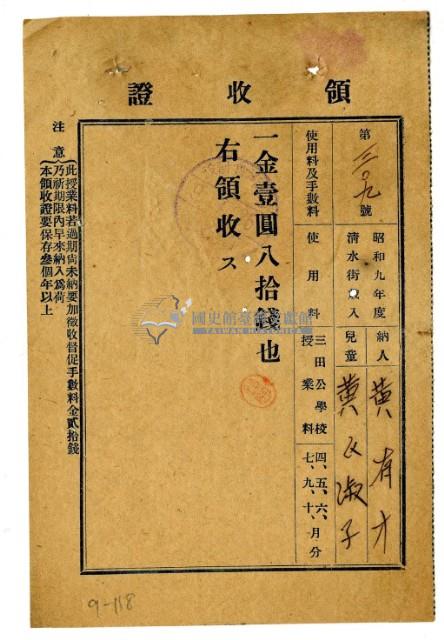 領收證
第三〇九號
昭和九年度 納人 黃有才
清水街歲入 兒童 黃氏淑子
使用料及手數料 使用料 三田公學校授業料 四、五、六、七、九、十、月分
一金壹圓八拾錢也
右領收ス
注意
此授業料若過期尚未納要加徵收督促手數料金貳拾錢
乃祈期限內早來納入為荷
本領收證要保存叄個年以上
國史館臺灣文獻館
TAIWAN HISTORICA
9-118